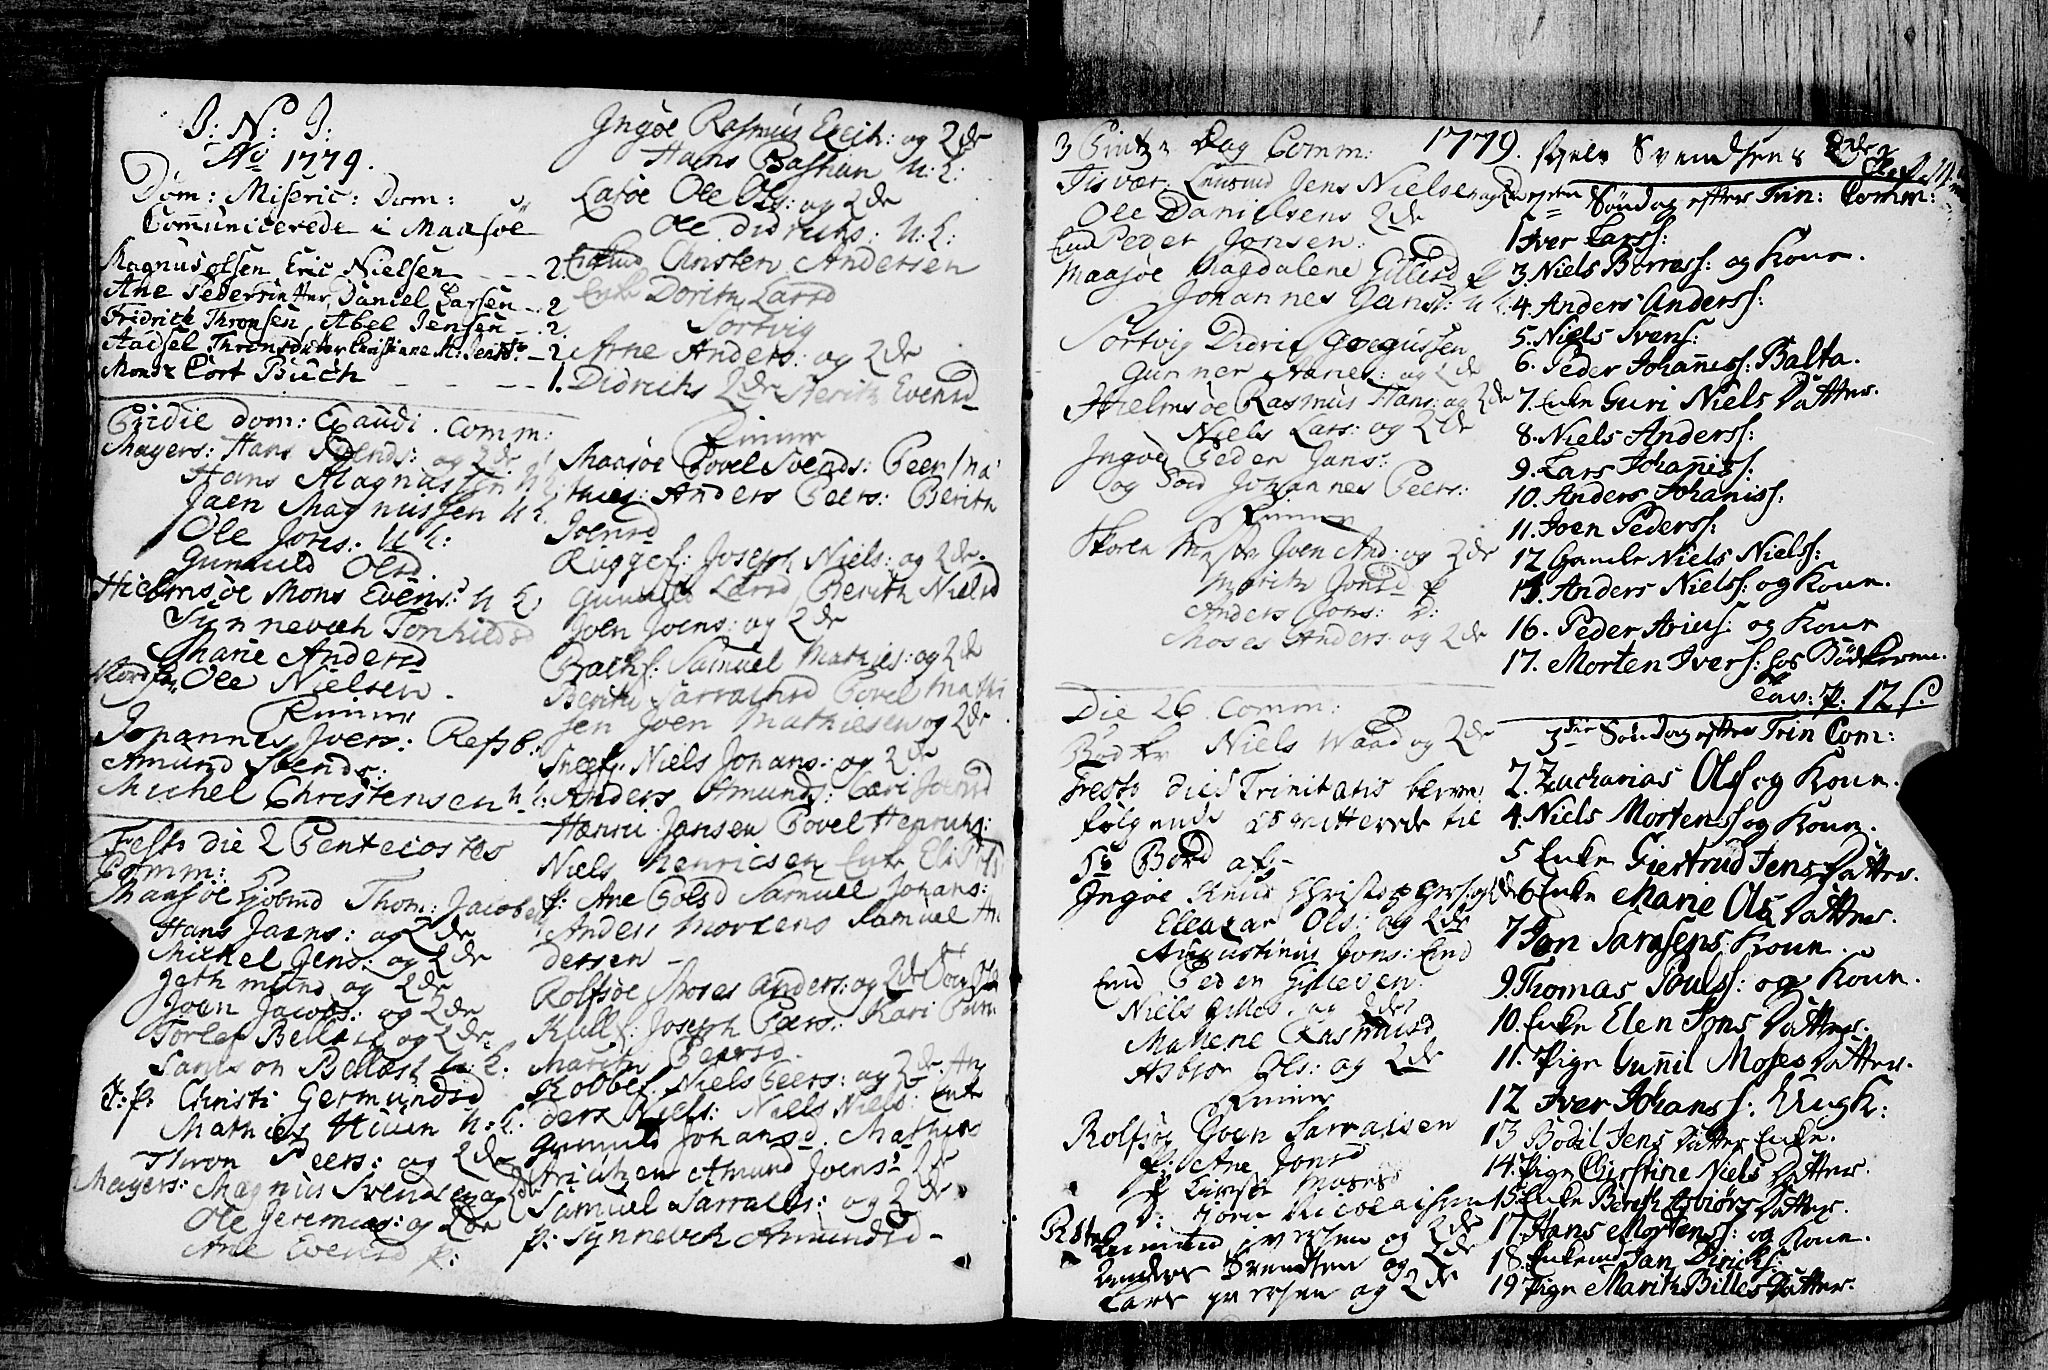 J: N: J:
Ao 1779.
Dom: Miseric: Dom:
Communicerede i Maasöe
Magnus Olsen Eric Nielsen - - - 2.
Ane Pedersdatter Daniel Larsen - - 2
Fridrich Thronsen Abel Jensen - . 2.
Axsel Thronsdatter Christiane M: Jensd: - 2
Mons: Cort Buch - - - - 1.
Pridie Dom: Exaudi. Comm:
Magers: Hans Svends: og 2de
Hans Magnussen U K:
Jaen Magnussen U K.
Ole Jons: U K:
Gunnild Olsd
Hielmsöe Mons Evens: U K.
Synnevæh Torkildsd
Marie Andersd
Ole Nielsen.
Finner
Johannes Ivers: Refsb:
Amund Svends:
Michel Christensen U. K:
Festo die 2 Pentecostes
Comm:
Maasöe Thom: Jacobs
Hans Jaens: og 2de
Mickel Jens: og 2de
Jethmund og 2de
Joen Jacobs: og 2de
Torlef Bellest og 2de
Samson Bellest U: K:
P: Christi Germundsd
Mathies Huen U. K:
Thron Peers: og 2de
Magers: Magnus Svendsen og 2de
Ole Jeremias: og 2de
Ane Evensd p:
Ingöe Rasmus Erich: og 2de
Hans Bastian U: K:
Latöe Ole Ols: og 2de
Ole Didrichs: U: K:
Christen Andersen
Enke Dorith Larsd
Sortvig
Arne Anders: og 2de
Didrichs 2de Berith Evensd
Finner
Maasöe Povel Svends: Peer Ma
thies: Anders Peers: Berith
Joensd
Ruggef: Joseph Niels: og 2de.
Gunnild Larsd Berith Nielsd
Joen Joens: og 2de
Bachf: Samuel Mathies: og 2de
Berith Sarrachsd Povel Mathi
sen Joen Mathiesen og 2de
Sneef: Niels Johans: og 2de
Anders Amunds: Cari Joensd
Henric Jansen Povel Henrichs:
Niels Henricsen Enke Elisab
p: Ane Polsd Samuel Johans:
Anders Mortens Samuel An
dersen -
Rolfsöe Moses Anders: og 2de
Kullf: Joseph Peers: Kari
Marith Peersd.
Kobbef. Niels Peers: og 2de. An
ders Niels: Niels Niels: Enke
Gunnild Johansd. Mathias
Amund Joens: 2de
Samuel Sarrachs: og 2de
p: Synnevæh Amundsd -
3 Pintz: Dag Comm: 1779.
Jens Nielsen og 2de
Ole Danielsens 2de
Peder Jonsen:
Maasöe Magdalene p
Johannes Hans: U K:
Sortvig Didric
Gunner Nanel: og 2de
Hielmsöe Rasmus Hans: og 2de
Niels Lars: og 2de
Ingöe Peder Jans:
og Johannes Peers:
Finner
Joen And: og 2de
Marith Jonsd p
Anders Jons: U:
Moses Anders: og 2de
Die 26 Comm:
Bödker Niels Waad og 2de
Festo Dies Trinitatis bleve
fölgende comitterede til
Gs Bord af -
Ingöe Knud Christophers: og 2de
Eleazar Ols: og 2de
Augustinus Jons: Emd
Emd Peder
Niels og 2de
Malene Rasmusd
Asbiör Ols: og 2de
Finner
Rolfsöe Joen Sarraisen
P: Ane Jonsd
P Kirste Mosesd
Amund Iversen og 2de
Anders Svendsen og 2de
Lars Iversen og 2de
Svendsens
Söndag efter Trin: Comm:
1 Iver Larss:
3. Niels Borress: og Kone.
4. Anders Anderss:
5. Niels Svens:
6. Peder Johaniss: Balta.
7. Enke Guri Niels Datter.
8. Niels Anderss:
9. Lars Johaniss:
10. Anders Johaniss:
11. Joen Pederss:
12 Gamle Niels Nielss:
14. Anders Nielss: og Kone.
16. Peder Arius: og Kone
17. Morten Ivers: hos Bödkeren.
Tav: P: 12 s.
3die Söndag efter Trin Com:
2. Zacharias Ols og Kone.
4. Niels Mortenss og Kone.
5 Enke Giertrud Jens Datter.
6 Enke Marie Ols Datter.
7 Jon Sarasens Kone.
9. Thomas Pouls: og Kone.
10. Enke Elen Jons Datter.
11. Pige Gunnil Moses Datter.
12 Iver Johanss: UngK:
13 Bodil Jens Datter Enke.
14. Pige Christine Niels Datter.
15. Enke Berith Asbiörs Datter.
17. Hans Mortenss: og Kone.
18. Enkemd Jan Dirichs:
19 Pige Marith Billes Datter.